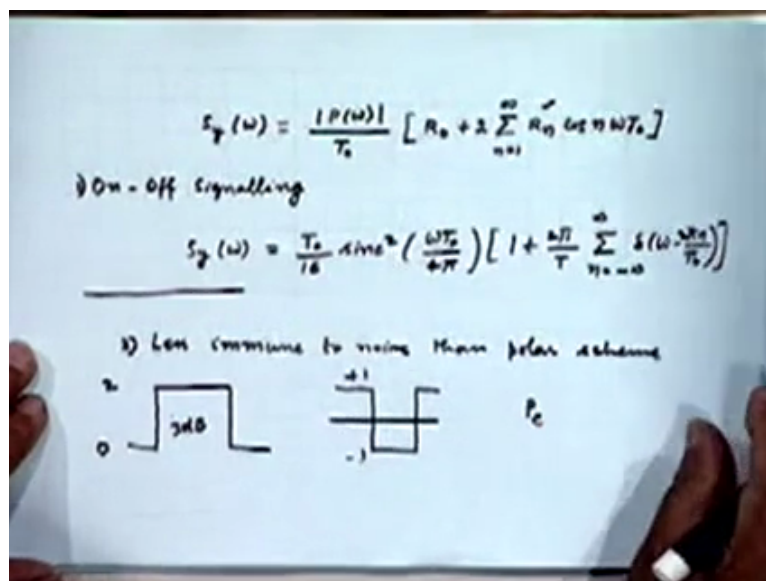 S_y (ω) = |P(ω)| / T₀ [ R₀ + 2 ∞ Σ n=1 R_n cos n ω T₀ ]
1) On-Off Signalling
S_y (ω) = T₀/16 sinc² ( ωT₀/4π ) [ 1 + 2π/T ∞ Σ n=-∞ δ(ω - 2πn/T₀) ]
1) Less immune to noise than polar scheme
2 +1
3dB P_e
0 -1